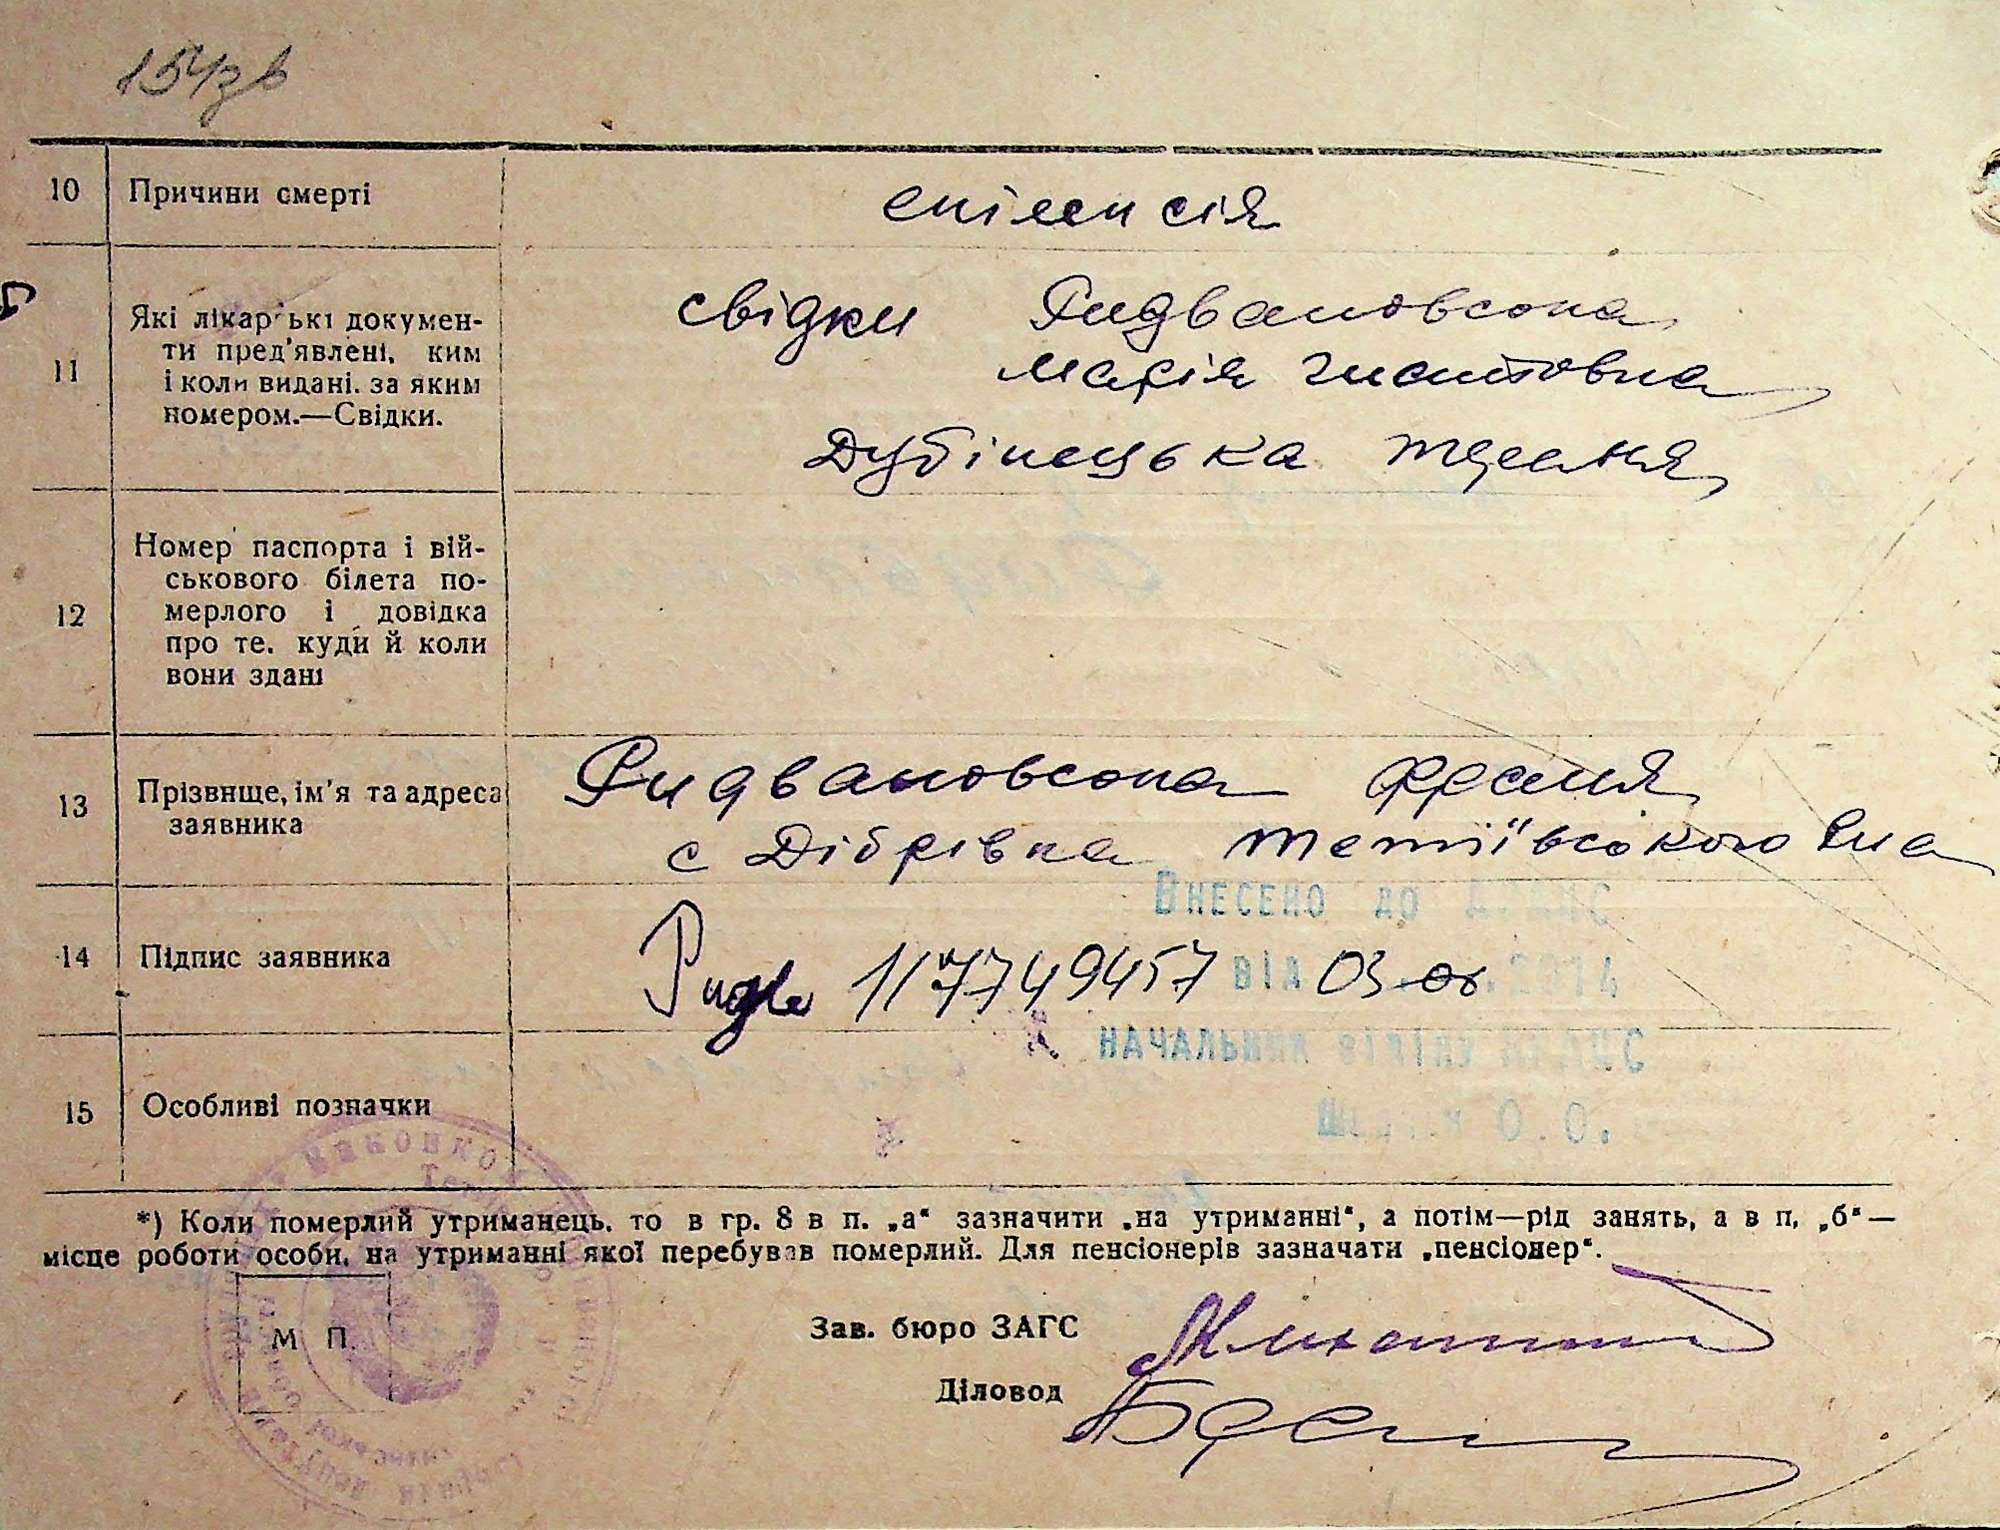 154зв
10 Причини смерті епілепсія
11 Які лікарські докумен-
ти пред'явлені, ким
і коли видані. за яким
номером.—Свідки.
свідки Ридвановська
Марія Гнатовна
Дубінецька
12 Номер паспорта і вій-
ськового білета по-
мерлого і довідка
про те. куди й коли
вони здані
13 Прізвище, ім'я та адреса
заявника
Ридвановська Франя
с Дібрівка Тетіївського р-на
Внесено до ДРАЦС
14 Підпис заявника Ридв 1/7749457 від 03 2014
начальник відділу ДРАЦС
15 Особливі позначки
О.О.
*) Коли померлий утриманець. то в гр. 8 в п. „а“ зазначити „на утриманні“, а потім—рід занять, а в п. „б“—
місце роботи особи. на утриманні якої перебував померлий. Для пенсіонерів зазначати „пенсіонер“.
М П.
Зав. бюро ЗАГС
Діловод
виконком